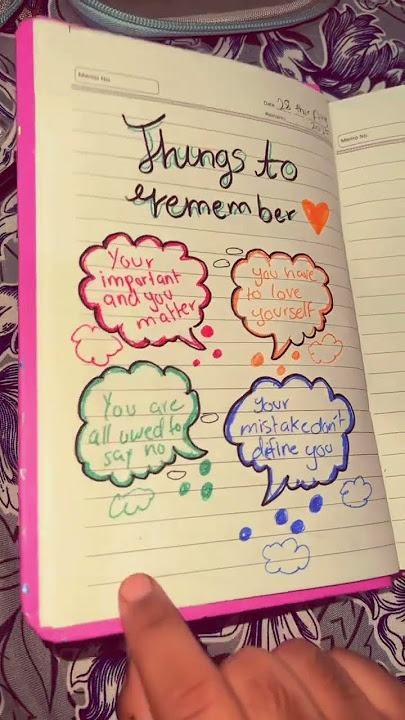 Memo No.
Date 28
Memo No.
Things to
remember
Your
important
and you
matter
you have
to love
yourself
You are
all uwed to
say no
Your
mistake don't
define you